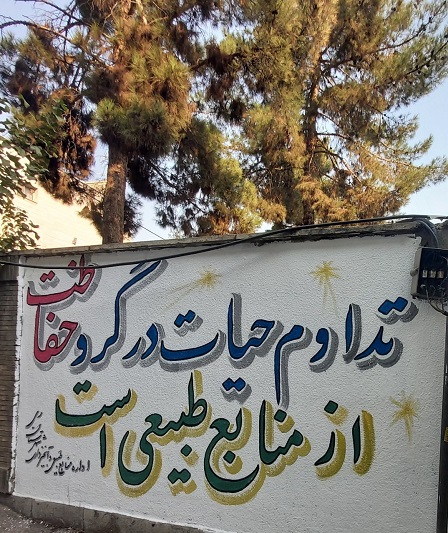 تداوم حیات در گرو حفاظت
از منابع طبیعی است
اداره منابع طبیعی و آبخیزداری
شهرستان ری